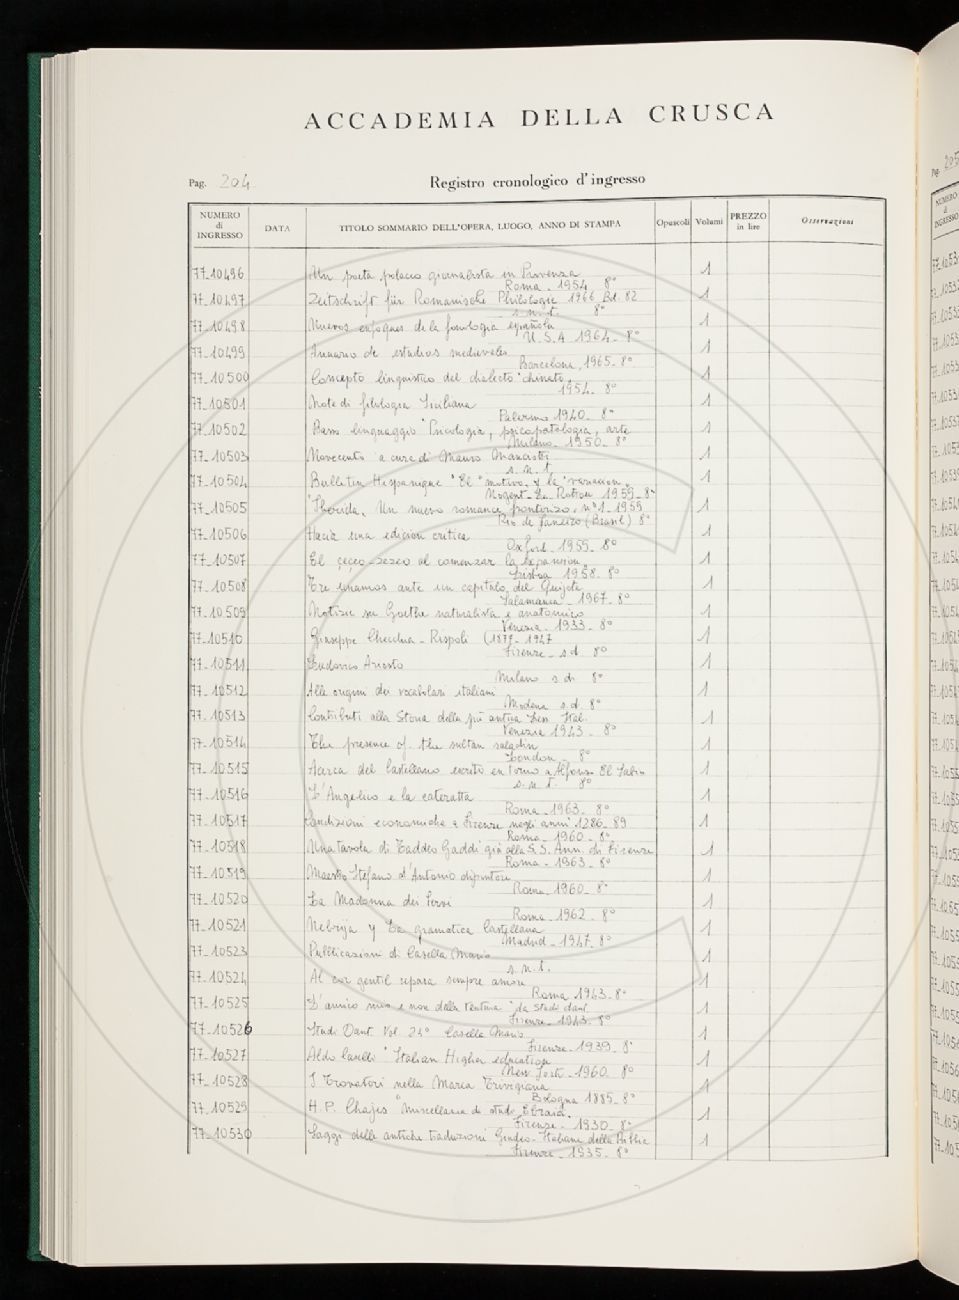 ACCADEMIA DELLA CRUSCA
Pag. 204
Registro cronologico d'ingresso
NUMERO di INGRESSO DATA TITOLO SOMMARIO DELL'OPERA, LUOGO, ANNO DI STAMPA Opuscoli Volumi PREZZO in lire Osservazioni
77-10496 Un poeta polacco giornalista in Provenza 1
Roma - 1954 8°
77-10497 Zeitschrift für Romanische Philologie 1966 Bd. 82 1
s.n.t. 8°
77-10498 Nuevos enfoques de la fonologia española 1
U.S.A 1964 - 8°
77-10499 Annuario de estudios medievales 1
Barcelona, 1965 - 8°
77-10500 Concepto linguistico del dialecto "chinato" 1
1954 - 8°
77-10501 Note di filologia Siciliana 1
Palermo 1940 - 8°
77-10502 linguaggio "Psicologia, psicopatologia, arte 1
Milano - 1950 - 8°
77-10503 Novecento a cura di Mauro 1
s.n.t.
77-10504 Bulletin Hispanique "El "motivo" y la "variacion" 1
Nogent-Le-Rotrou 1959 - 8°
77-10505 Un nuevo romance fronterizo, n°1 - 1959 1
Rio de Janeiro (Brasil) 8°
77-10506 Hacia una edicion critica 1
Oxford - 1955 - 8°
77-10507 El çeçeo-seseo al comenzar la expansion 1
Lisboa 1958 - 8°
77-10508 Tre ante un capitulo del Quijote 1
Salamanca - 1967 - 8°
77-10509 Notizie su Goethe naturalista e anatomico 1
Venezia - 1933 - 8°
77-10510 Giuseppe Checchia - Rispoli (1877-1947 1
Firenze - s.d. 8°
77-10511 Ludovico Ariosto 1
Milano s.d. 8°
77-10512 Alle origini dei vocabolari italiani 1
Modena s.d. 8°
77-10513 Contributi alla Storia della più antica Lett. Ital. 1
Venezia 1943 - 8°
77-10514 The presence of the sultan saladin 1
London - 8°
77-10515 Acerca del Castellano escrito en torno a Alfonso El Sabio 1
s.n.t. 8°
77-10516 L'Angelico e la cateratta 1
Roma - 1963 - 8°
77-10517 Condizioni economiche a Firenze negli anni 1286-89 1
Roma - 1960 - 8°
77-10518 Una tavola di Taddeo Gaddi già alla S.S. Ann. di Firenze 1
Roma - 1963 - 8°
77-10519 Maestro Stefano d'Antonio dipintore 1
Roma - 1960 - 8°
77-10520 La Madonna dei Servi 1
Roma - 1962 - 8°
77-10521 Nebrija y La gramatica Castellana 1
Madrid - 1947 - 8°
77-10523 Pubblicazioni di Casella Mario 1
s.n.t.
77-10524 Al cor gentil repara sempre amore 1
Roma 1943 - 8°
77-10525 L'amico mio e non della ventura "da Studi dant. 1
Firenze - 1943 - 8°
77-10526 Studi Dant. Vol. 24° Casella Mario 1
Firenze - 1939 - 8°
77-10527 Aldo Caselli "Italian Higher education 1
New York - 1960 8°
77-10528 I Trovatori nella Marca Trivigiana 1
Bologna 1885 - 8°
77-10529 H.P. Chajes "Miscellanea di studi Ebraici" 1
Firenze - 1930 - 8°
77-10530 Saggi delle antiche traduzioni Giudeo-Italiane della Bibbia 1
Firenze - 1935 - 8°